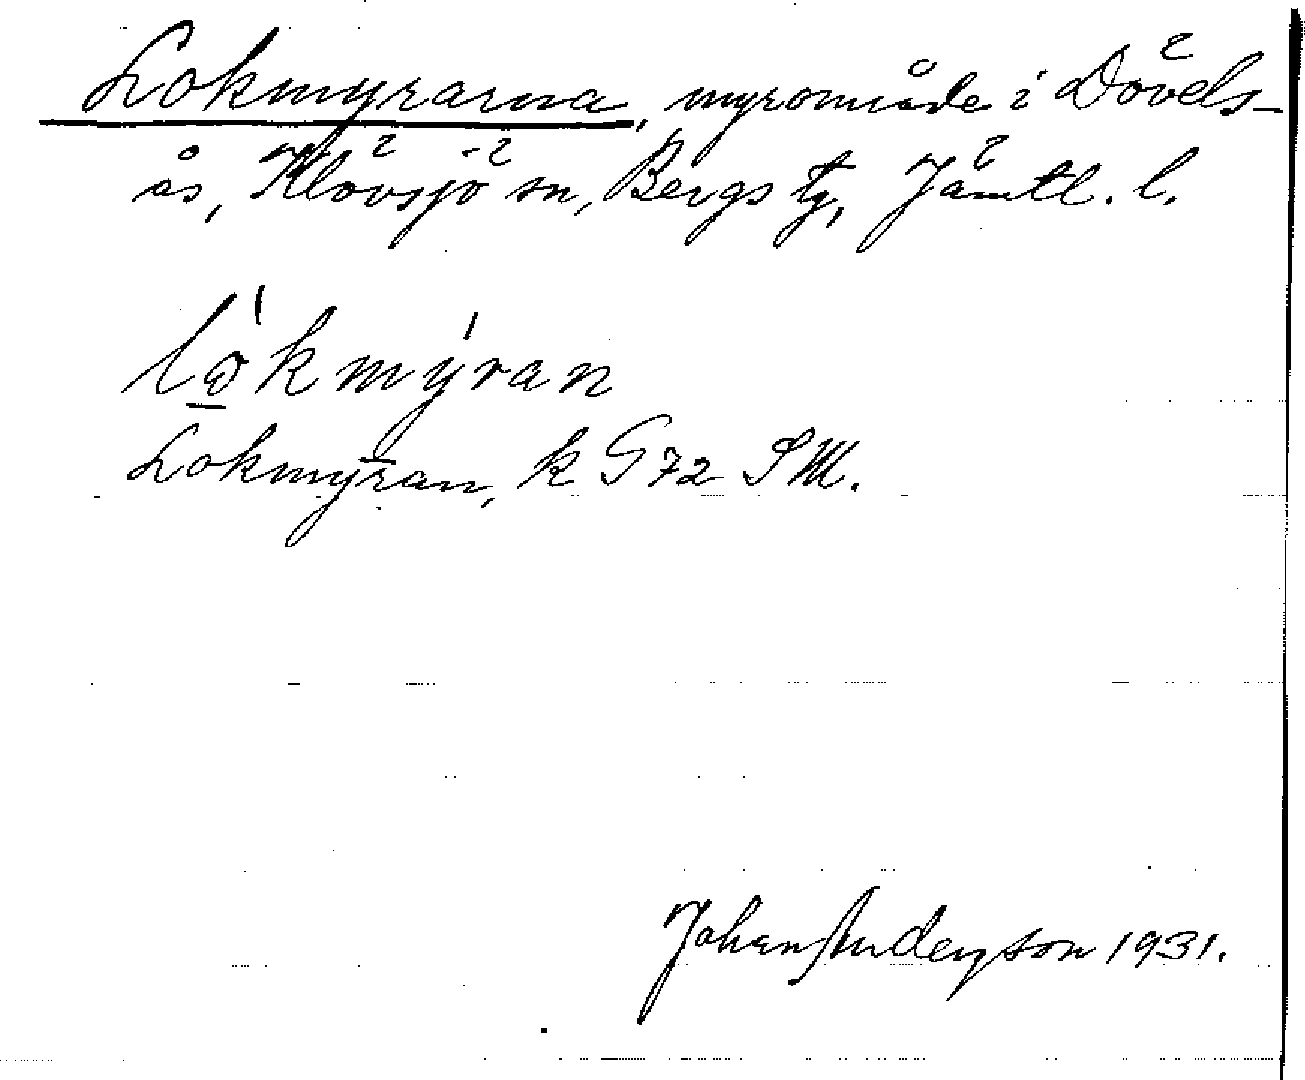 Lokmyrarna, myrområde i Dövels-
ås, Klövsjö sn, Bergs tg, Jämtl. l.
lò̱kmýran
Lokmyran, k G72 SW.
Johan Anderson 1931.